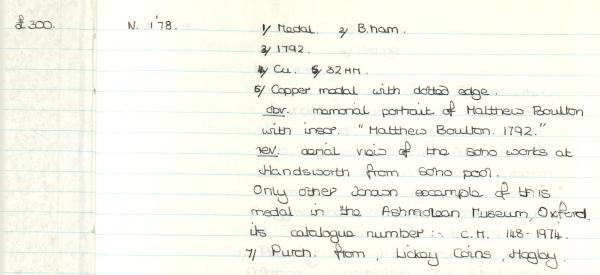 £300. N. 1'78. 1/ Medal. 2/ B.ham.
3/ 1792.
4/ Cu. 5/ 32MM.
6/ Copper medal with dotted edge.
obv. memorial portrait of Matthew Boulton
with inscr. "Matthew Boulton. 1792."
rev. aerial view of the Soho works at
Handsworth from Soho pool.
Only other known example of this
medal in the Ashmolean Museum, Oxford.
its catalogue number :- C.M. 148-1974.
7/ Purch. from, Lickey Coins, Hagley.